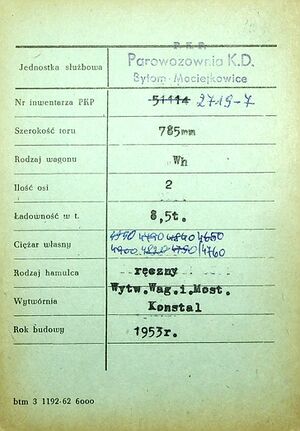 P.K.P.
Jednostka służbowa Parowozownia K.D.
Bytom-Maciejkowice
Nr inwentarza PKP 51114 2719-7
Szerokość toru 785mm
Rodzaj wagonu Wh
Ilość osi 2
Ładowność w t. 8,5t.
Ciężar własny 4790 4840 4650
4900 4820 4750/4760
Rodzaj hamulca ręczny
Wytwórnia Wytw.Wag.i.Most.
Konstal
Rok budowy 1953r.
btm 3 1192-62 6000